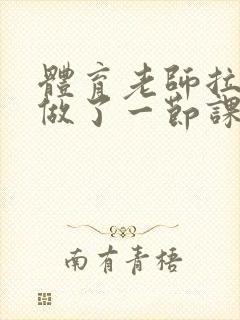 體育老師拉
做了一節課
南有青梧